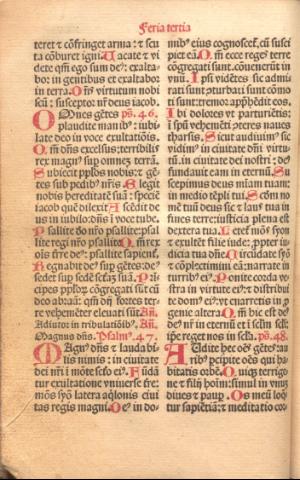 Feria tertia
teret ⁊ cõfringet arma: ⁊ scu
ta cõburet igni. Uacate ⁊ vi
dete qm̃ ego sum deꝰ: exalta
bor in gentibus et exaltabor
in terra. Dñs virtutum nobi
scũ: susceptor nr̃ deus iacob.
Omnes gẽtes ps. 46.
plaudite manibꝰ: iubi
late deo in voce exultatiõis.
Qm̃ dñs excelsus: terribilis
rex magnꝰ sup omnẽ terrã.
Subiecit pplõs nobis: ⁊ gẽ
tes sub pedibꝰ nr̃is. Elegit
nobis hereditatẽ suã: speciẽ
iacob quẽ dilexit. Ascẽdit de
us in iubilo: dñs ĩ voce tube.
Psallite deo nr̃o psallite: psal
lite regi nr̃o psallite. Qm̃ rex
oĩs terre deꝰ: psallite sapiẽt.
Regnabit deꝰ sup gẽtes: deꝰ
sedet sup sedẽ sctãz suã. Prĩ
cipes pplõꝝ cõgregati sũt cũ
deo abraã: qm̃ dij fortes ter
re vehemẽter eleuati sũt. Añ.
Adiutor in tribulatiõibꝰ. Añ.
Magnus dñs. Psalmꝰ. 47.
Magnꝰ dñs ⁊ lauda bi
lis nimis: in ciuitate
dei nr̃i ĩ mõte scto eiꝰ. Fũda
tur exultatione vniuerse ter
mõs syõ latera aq̃lonis ciui
tas regis magni. Deꝰ in do
mibꝰ eius cognoscet̃, cũ susci
piet eã. Qm̃ ecce reges terre
cõgregati sunt. cõuenerũt in
vnũ. Ipi vidẽtes sic admi
rati sunt: ꝯturbati sunt cõmo
ti sunt: tremor apphẽdit eos.
Ibi dolores vt parturiẽtis:
ĩ spũ vehemẽti ꝯteres naues
tharsis. Sicut audiuimꝰ sic
vidimꝰ in ciuitate dñi virtu
tũ. in ciuitate dei nostri: deꝰ
fundauit eam in eternũ. Su
scepimus deus miam tuam:
in medio tẽpli tui. Scdm no
mẽ tuũ deus sic ⁊ laus tua in
fines terre: iusticia plena est
dextera tua. Letet̃ mõs syon
⁊ exultẽt filie iude: ꝓpter iu
dicia tua dñe. Circũdate syõ
⁊ cõplectimini eã: narrate in
turribꝰ eiꝰ. Ponite corda vr̃a
in virtute eiꝰ: ⁊ distribui
te domꝰ eiꝰ: vt enarretis in ꝓ
genie altera. Qm̃ hic est deꝰ
deꝰ nr̃ in eternũ et ĩ sclm scli:
ipe reget nos in scla. ps. 48.
Audite hec oẽs gẽtes: au
ribꝰ pcipite oẽs qui ha
bitatis orbẽ. Quiqꝫ terrige
ne ⁊ filij hoĩm: simul in vnuz
diues ⁊ paup. Os meũ loq̃
tur sapiẽtiã: ⁊ meditatio cor